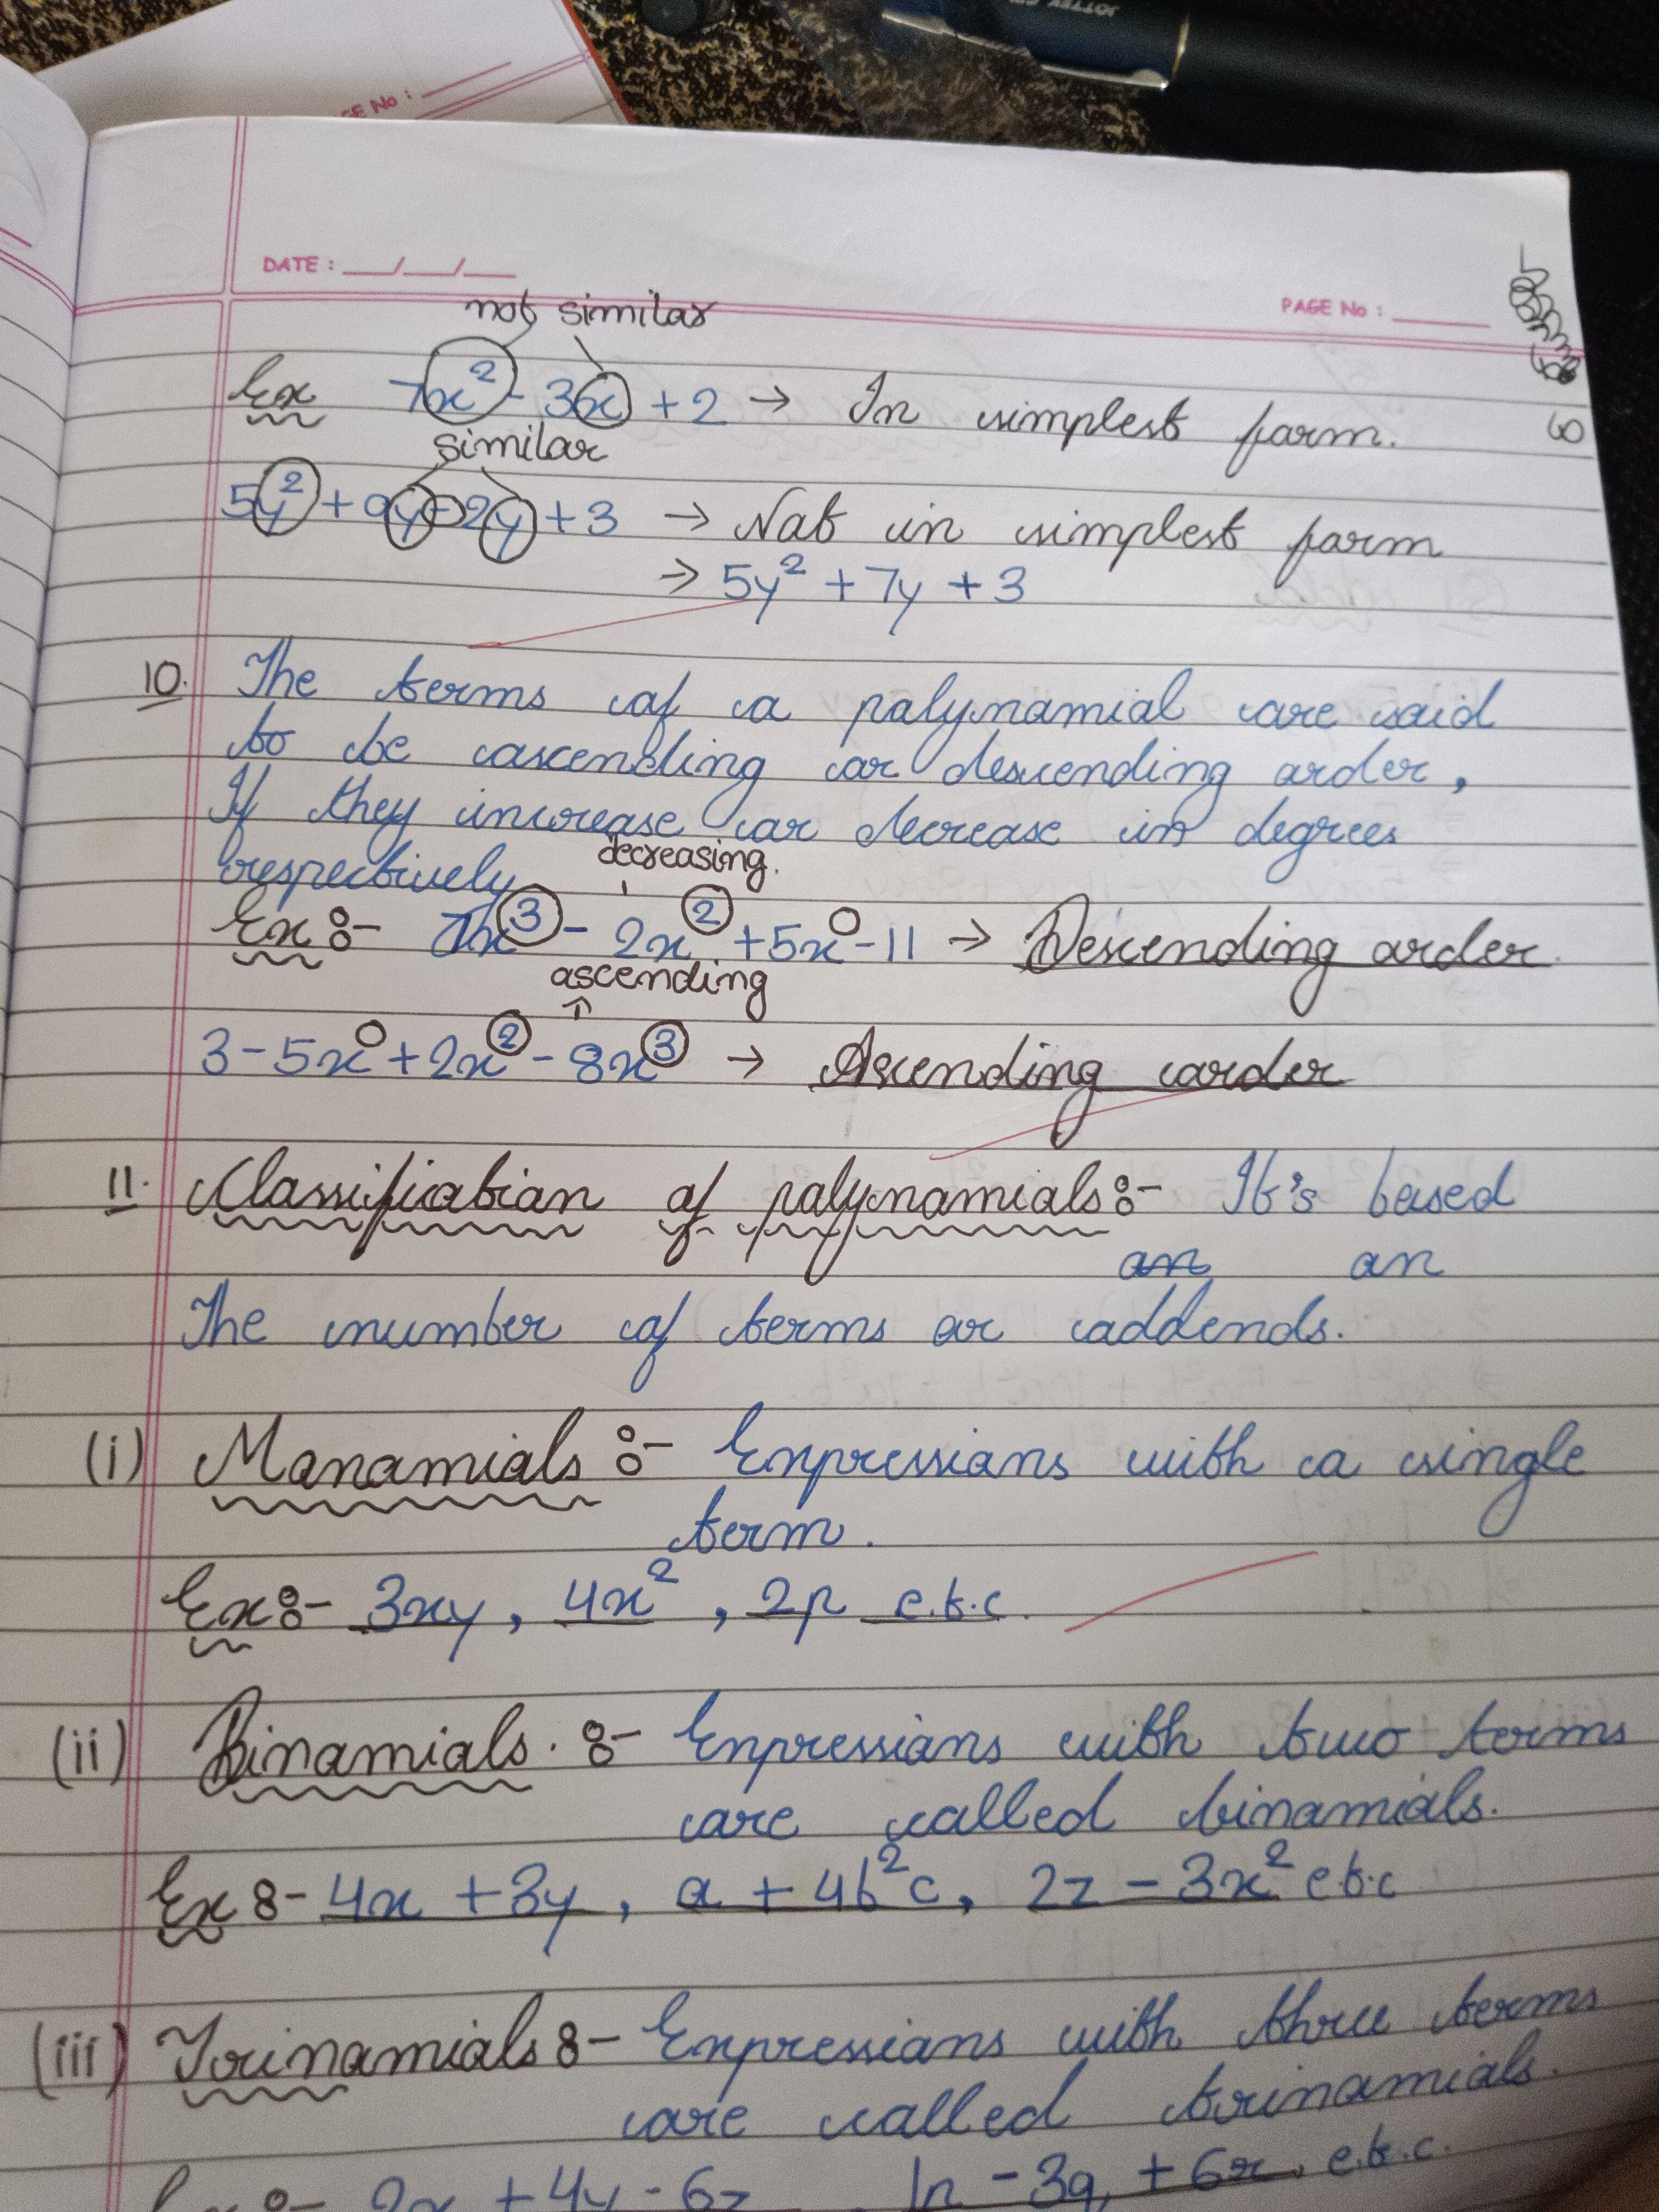 JOTTER
GE No :
DATE : __/__/__
PAGE No : ____
not similar
Ex 7x² - 3x + 2 → In simplest form.
similar
5y² + 9y - 2y + 3 → Not in simplest form
→ 5y² + 7y + 3
10. The terms of a polynomial are said
to be ascending or descending order,
If they increase or decrease in degrees
respectively
decreasing.
Ex :- 7x³ - 2x² + 5x - 11 → Descending order.
ascending
↑
3 - 5x + 2x² - 8x³ → Ascending order
11. Classification of polynomials :- It's based
on on
The number of terms or addends.
(i) Monomials :- Expressions with a single
term.
Ex :- 3xy, 4x², 2p e.t.c.
(ii) Binomials. :- Expressions with two terms
are called binomials.
Ex :- 4x + 3y, a + 4b²c, 2z - 3x² e.t.c
(iii) Trinomials :- Expressions with three terms
are called trinomials.
Ex :- 2x + 4y - 6z - 3q + 6r, e.t.c.